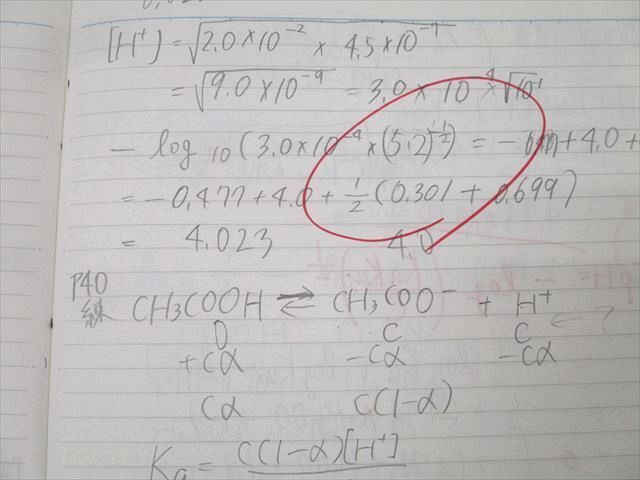 [H⁺] = √2.0×10⁻² × 4.5×10⁻⁷
= √9.0×10⁻⁹ = 3.0 × 10⁻⁴ √10
- log₁₀ (3.0×10⁻⁴×(5·2)^(-1/2)) = - + 4.0 +
= -0.477 + 4.0 + 1/2 (0.301 + 0.699)
= 4.023 4.0
P40
練 CH₃COOH ⇌ CH₃COO⁻ + H⁺
0 C C ← ?
+Cα -Cα -Cα
Cα C(1-α)
Ka = C(1-α)[H⁺]